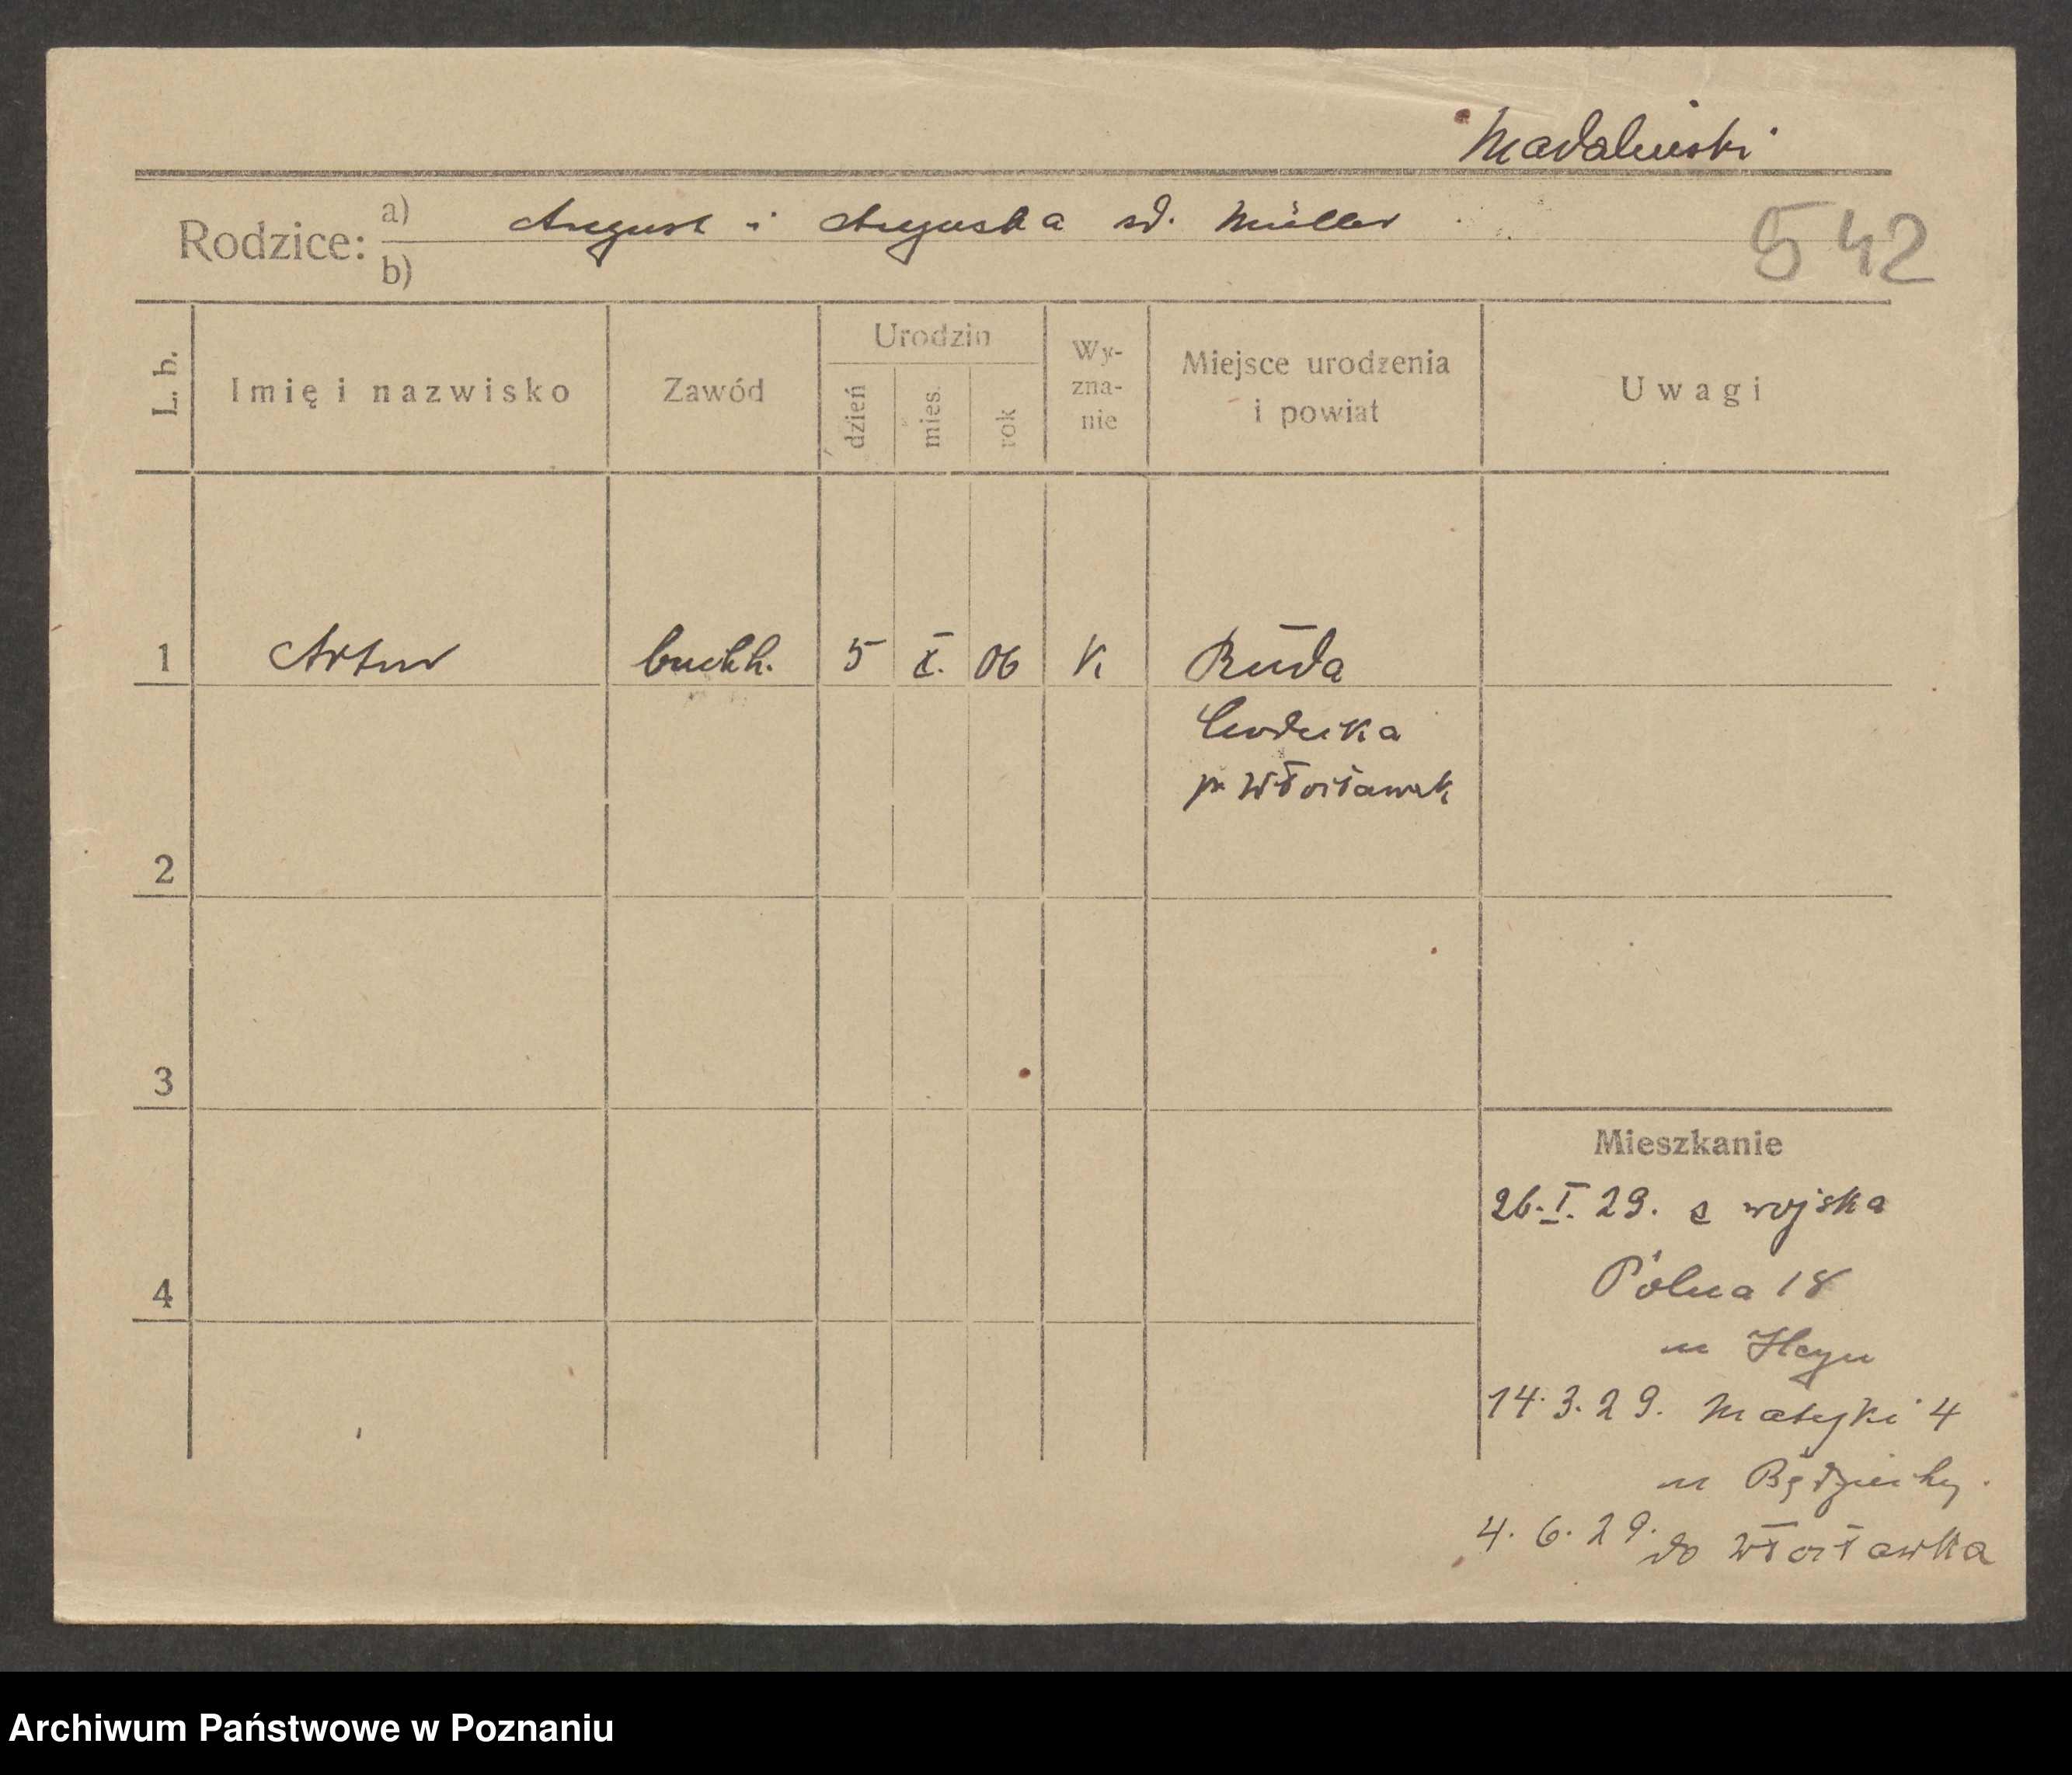 Madaliński
Rodzice: a) August i Augusta zd. Müller
b)
542
L. b. Imię i nazwisko Zawód Urodzin dzień mies. rok Wy-zna-nie Miejsce urodzenia i powiat Uwagi
1 Artur buchh. 5 X. 06 K Ruda
p. Włocławek
2
3
4
Mieszkanie
26.I.29. z wojska
Polna 18
u Heyn
14.3.29. Matejki 4
u
4.6.29. do Włocławka
Archiwum Państwowe w Poznaniu